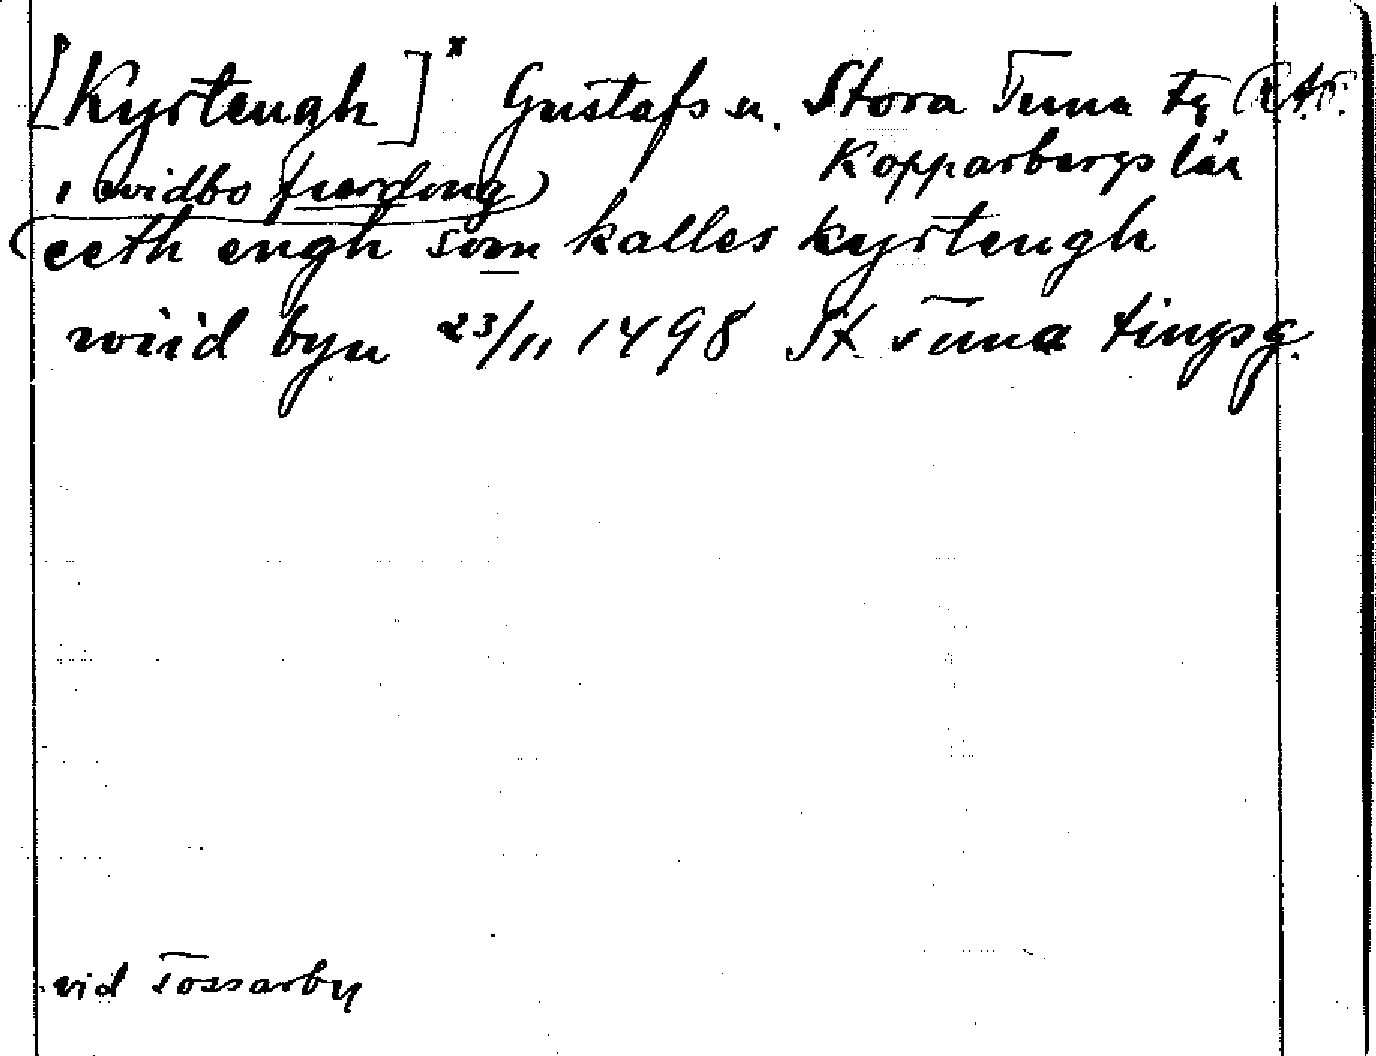 [Kyrtengh]* Gustafs sn. Stora Tuna tg
Kopparbergs län
i widbo fierdong)
(eeth engh som kalles kyrtengh
wiid byn 23/11 1498 St Tuna tingsg.
vid Tossarby